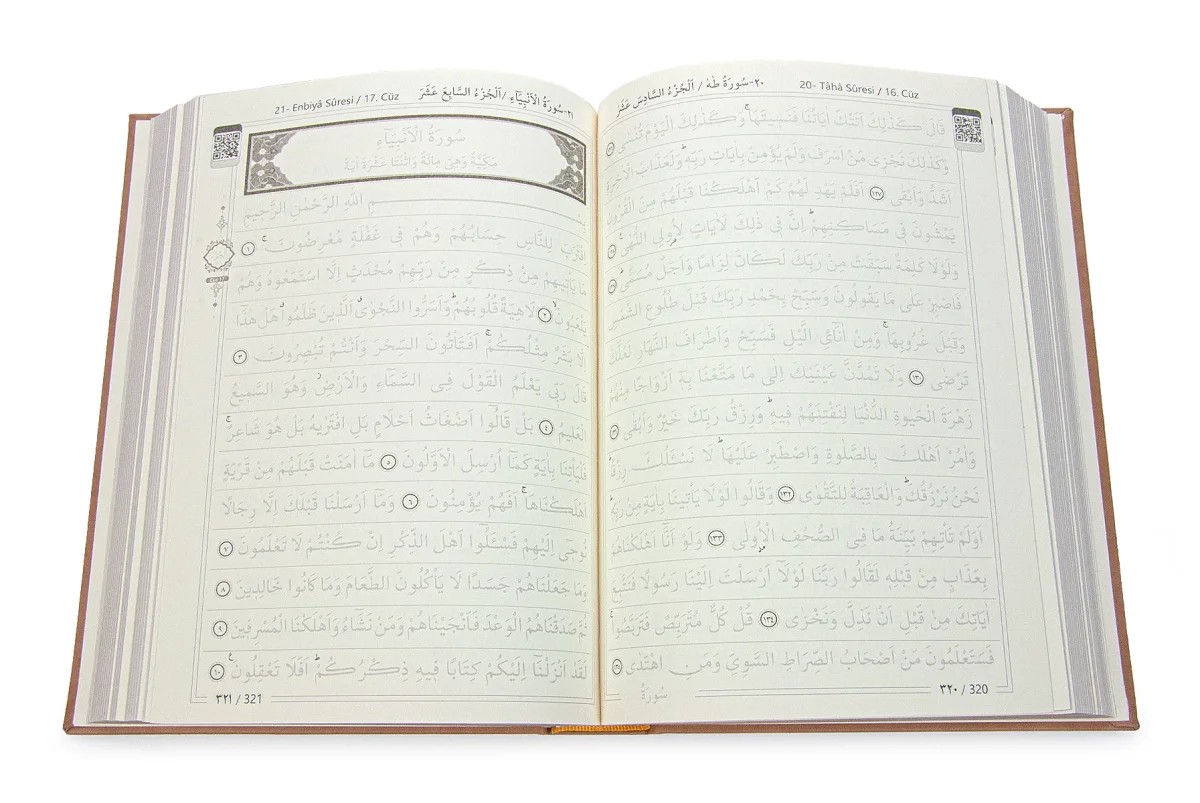 20- Tâhâ Sûresi / 16. Cüz ٢٠-سُورَةُ طٰهٰ / اَلْجُزْءُ السَّادِسَ عَشَرَ
قَالَ كَذٰلِكَ اَتَتْكَ اٰيَاتُنَا فَنَسِيتَهَاۚ وَكَذٰلِكَ الْيَوْمَ تُنْسٰى
وَكَذٰلِكَ نَجْزِي مَنْ اَسْرَفَ وَلَمْ يُؤْمِنْ بِاٰيَاتِ رَبِّهِۜ وَلَعَذَابُ الْاٰخِرَةِ
اَشَدُّ وَاَبْقٰى ١٢٧ اَفَلَمْ يَهْدِ لَهُمْ كَمْ اَهْلَكْنَا قَبْلَهُمْ مِنَ الْقُرُونِ
يَمْشُونَ فِي مَسَاكِنِهِمْۜ اِنَّ فِي ذٰلِكَ لَاٰيَاتٍ لِاُو۬لِي النُّهٰى
وَلَوْلَا كَلِمَةٌ سَبَقَتْ مِنْ رَبِّكَ لَكَانَ لِزَامًا وَاَجَلٌ مُسَمًّىۜ
فَاصْبِرْ عَلٰى مَا يَقُولُونَ وَسَبِّحْ بِحَمْدِ رَبِّكَ قَبْلَ طُلُوعِ الشَّمْسِ
وَقَبْلَ غُرُوبِهَاۚ وَمِنْ اٰنَآئِ الَّيْلِ فَسَبِّحْ وَاَطْرَافَ النَّهَارِ لَعَلَّكَ
تَرْضٰى ١٣٠ وَلَا تَمُدَّنَّ عَيْنَيْكَ اِلٰى مَا مَتَّعْنَا بِهٖٓ اَزْوَاجًا مِنْهُمْ
زَهْرَةَ الْحَيٰوةِ الدُّنْيَا لِنَفْتِنَهُمْ فِيهِۜ وَرِزْقُ رَبِّكَ خَيْرٌ وَاَبْقٰى
وَأْمُرْ اَهْلَكَ بِالصَّلٰوةِ وَاصْطَبِرْ عَلَيْهَاۜ لَا نَسْـَٔلُكَ رِزْقًاۜ
نَحْنُ نَرْزُقُكَۜ وَالْعَاقِبَةُ لِلتَّقْوٰى ١٣٢ وَقَالُوا لَوْلَا يَأْتِينَا بِاٰيَةٍ مِنْ رَبِّهِۜ
اَوَلَمْ تَأْتِهِمْ بَيِّنَةُ مَا فِي الصُّحُفِ الْاُو۫لٰى ١٣٣ وَلَوْ اَنَّآ اَهْلَكْنَاهُمْ
بِعَذَابٍ مِنْ قَبْلِهٖ لَقَالُوا رَبَّنَا لَوْلَآ اَرْسَلْتَ اِلَيْنَا رَسُولًا فَنَتَّبِعَ
اٰيَاتِكَ مِنْ قَبْلِ اَنْ نَذِلَّ وَنَخْزٰى ١٣٤ قُلْ كُلٌّ مُتَرَبِّصٌ فَتَرَبَّصُواۚ
فَسَتَعْلَمُونَ مَنْ اَصْحَابُ الصِّرَاطِ السَّوِيِّ وَمَنِ اهْتَدٰى ١٣٥
سُورَةُ
٣٢٠ / 320
21- Enbiyâ Sûresi / 17. Cüz ٢١-سُورَةُ الْاَنْبِيَآءِ / اَلْجُزْءُ السَّابِعَ عَشَرَ
سُورَةُ الْاَنْبِيَآءِ
مَكِّيَّةٌ وَهِيَ مِائَةٌ وَاثْنَتَا عَشْرَةَ اٰيَةً
بِسْمِ اللّٰهِ الرَّحْمٰنِ الرَّحِيمِ
اِقْتَرَبَ لِلنَّاسِ حِسَابُهُمْ وَهُمْ فِي غَفْلَةٍ مُعْرِضُونَۚ ١
مَا يَأْتِيهِمْ مِنْ ذِكْرٍ مِنْ رَبِّهِمْ مُحْدَثٍ اِلَّا اسْتَمَعُوهُ وَهُمْ
يَلْعَبُونَۙ ٢ لَاهِيَةً قُلُوبُهُمْۜ وَاَسَرُّوا النَّجْوٰىۗ اَلَّذِينَ ظَلَمُواۗ هَلْ هٰذَٓا
اِلَّا بَشَرٌ مِثْلُكُمْۚ اَفَتَأْتُونَ السِّحْرَ وَاَنْتُمْ تُبْصِرُونَ ٣
قَالَ رَبِّي يَعْلَمُ الْقَوْلَ فِي السَّمَآءِ وَالْاَرْضِۘ وَهُوَ السَّمِيعُ
الْعَلِيمُ ٤ بَلْ قَالُٓوا اَضْغَاثُ اَحْلَامٍ بَلِ افْتَرٰيهُ بَلْ هُوَ شَاعِرٌۚ
فَلْيَأْتِنَا بِاٰيَةٍ كَمَٓا اُرْسِلَ الْاَوَّلُونَ ٥ مَٓا اٰمَنَتْ قَبْلَهُمْ مِنْ قَرْيَةٍ
اَهْلَكْنَاهَاۚ اَفَهُمْ يُؤْمِنُونَ ٦ وَمَٓا اَرْسَلْنَا قَبْلَكَ اِلَّا رِجَالًا
نُوحِٓي اِلَيْهِمْ فَسْـَٔلُٓوا اَهْلَ الذِّكْرِ اِنْ كُنْتُمْ لَا تَعْلَمُونَ ٧
وَمَا جَعَلْنَاهُمْ جَسَدًا لَا يَأْكُلُونَ الطَّعَامَ وَمَا كَانُوا خَالِدِينَ ٨
ثُمَّ صَدَقْنَاهُمُ الْوَعْدَ فَاَنْجَيْنَاهُمْ وَمَنْ نَشَٓاءُ وَاَهْلَكْنَا الْمُسْرِفِينَ ٩
لَقَدْ اَنْزَلْنَٓا اِلَيْكُمْ كِتَابًا فِيهِ ذِكْرُكُمْۜ اَفَلَا تَعْقِلُونَ۟ ١٠
٣٢١ / 321